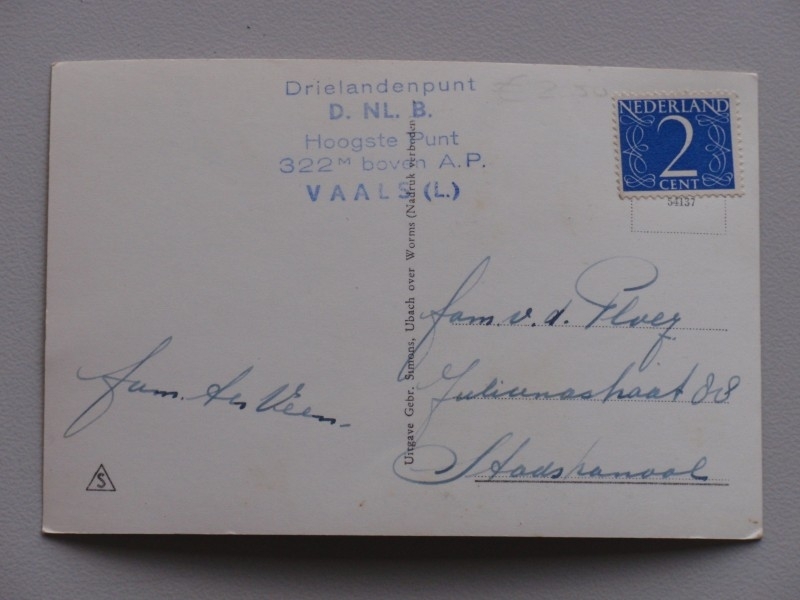 Drielandenpunt
D. NL. B.
Hoogste Punt
322M boven A.P.
VAALS (L.)
NEDERLAND
2
CENT
54137
Uitgave Gebr. Simons, Ubach over Worms (Nadruk verboden
fam. v. d. Ploeg
Julianastraat 88
Stadskanaal
fam. ter Veen
S